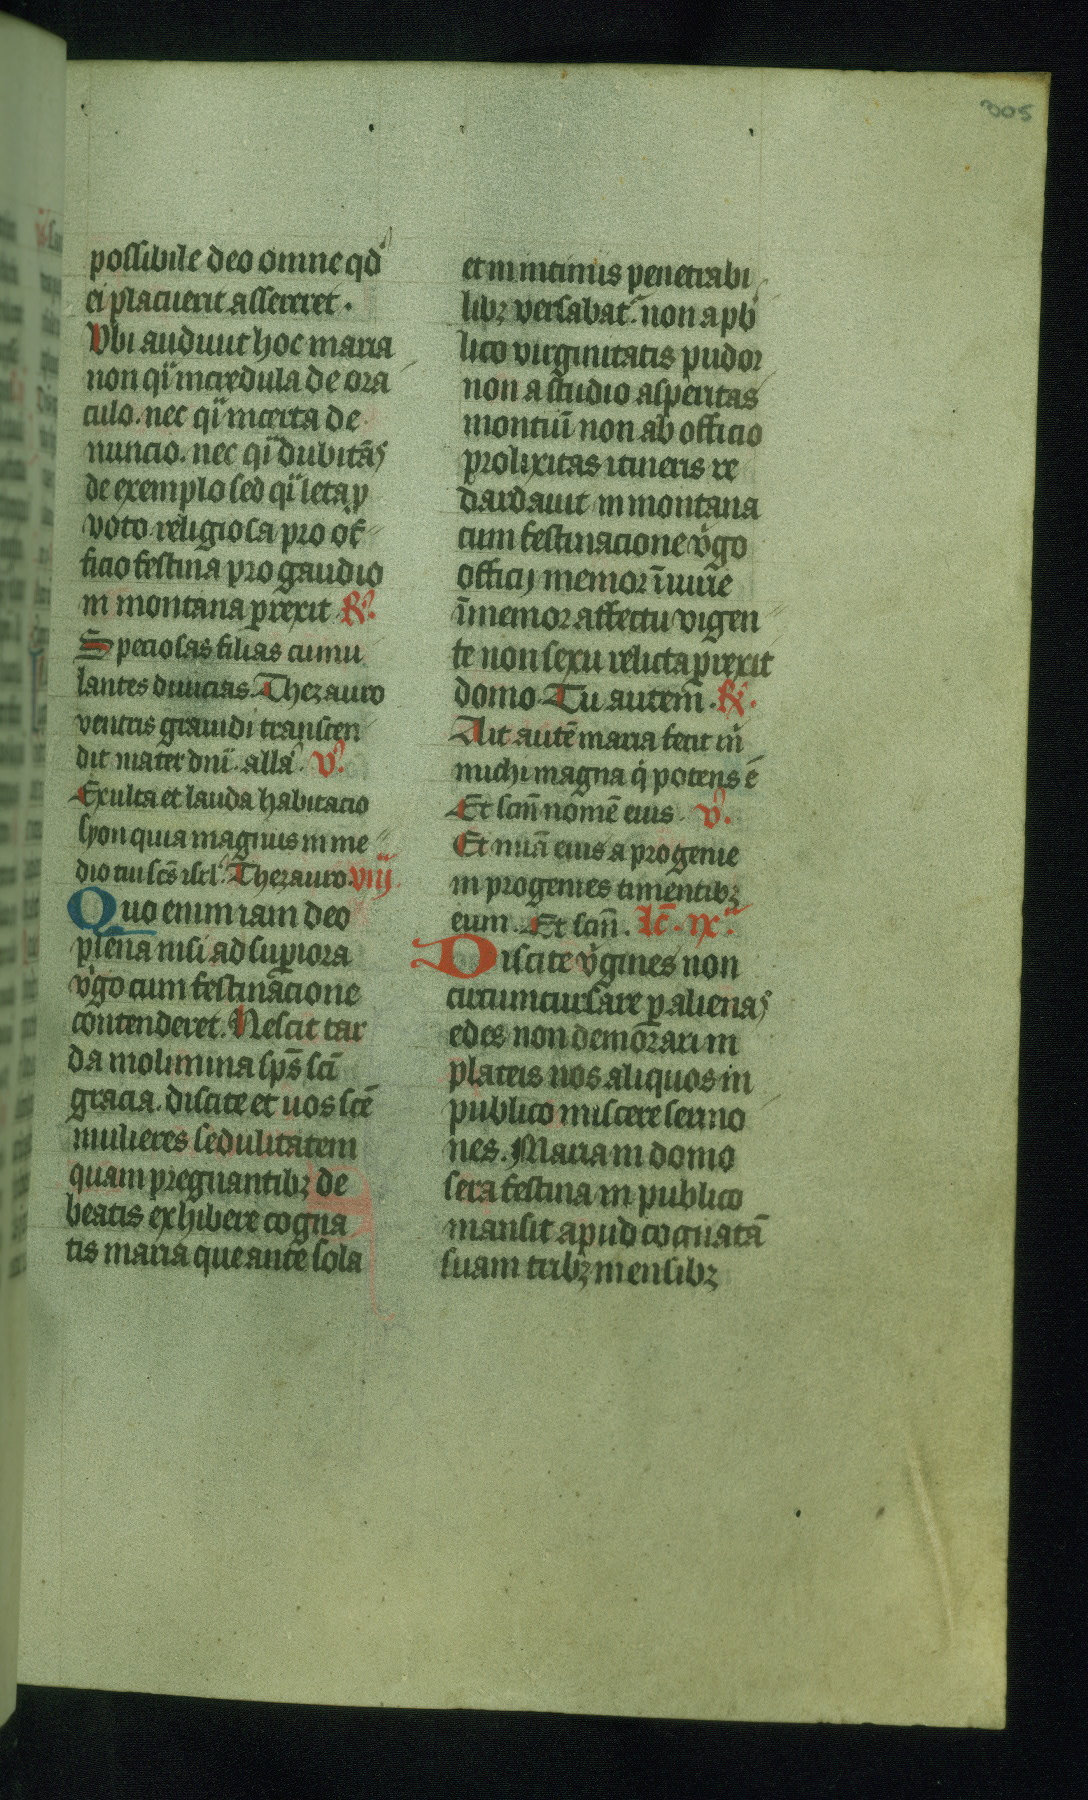 305
possibile deo omne qd
ei placuerit assereret.
Vbi audiuit hoc maria
non qi incredula de ora
culo. nec qi incerta de
nuncio. nec qi dubitās
de exemplo sed qi leta p
voto religiosa pro of
ficio festina pro gaudio
in montana prexit R.
Speciosas filias cumu
lantes diuicias. Thezauro
ventris grauidi transcen
dit mater dnī. alla. v.
Exulta et lauda habitacio
syon quia magnus in me
dio tui scs isrl. Thezauro. viij
Quo enim iam deo
plena nisi ad supiora
vgo cum festinacione
contenderet. Nescit tar
da molimina sps scī
gracia. discite et uos scē
mulieres sedulitatem
quam pregnantibz de
beatis exhibere cogna
tis maria que ante sola
et in intimis penetrabi
libz versabat. non a pb
lico virginitatis pudor
non a studio asperitas
montiū non ab officio
prolixitas itineris re
dardauit in montana
cum festinacione vgo
officij memor īiurie
īmemor affectu vigen
te non sexu relicta prexit
domo. Tu autem. R.
Ait autē maria fecit m
michi magna q potens ē
Et scm nomē eius. v.
Et mīa eius a progenie
in progenies timentibz
eum. Et scm. lc. ix.
Discite vgines non
circumcursare p alienas
edes non demorari in
plateis nos aliquos in
publico miscere sermo
nes. Mariam domo
sera festina in publico
mansit apud cognatā
suam tribz mensibz